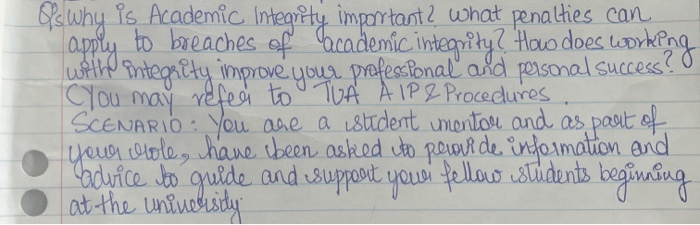 Q's Why is Academic Integrity important? what penalties can
apply to breaches of academic integrity? How does working
with integrity improve your professional and personal success?
(You may refer to TUA AIP & Procedures.
SCENARIO: You are a student mentor and as part of
your role, have been asked to provide information and
advice to guide and support your fellow students beginning
at the university